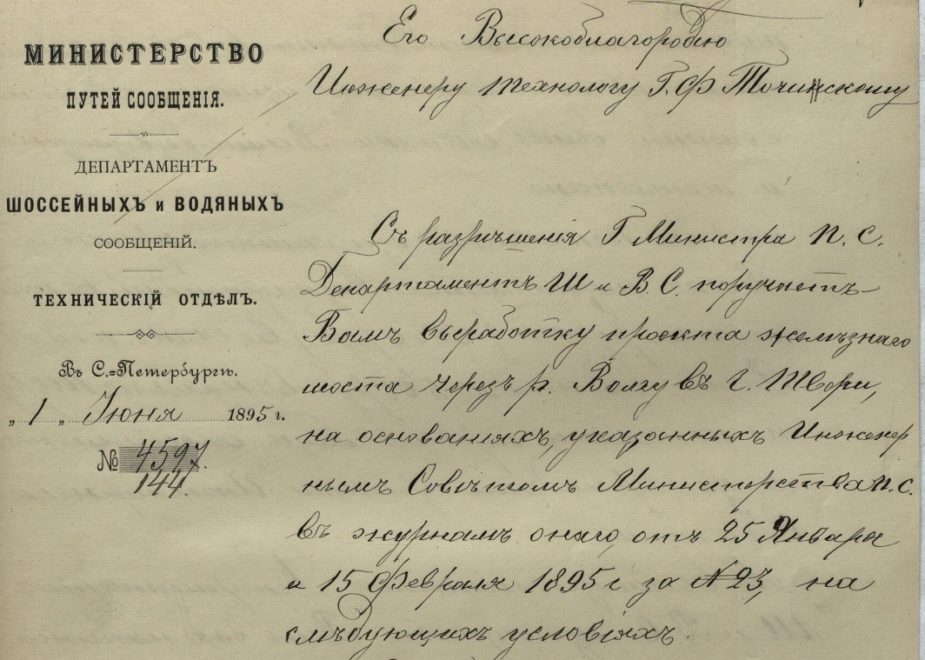 МИНИСТЕРСТВО
ПУТЕЙ СООБЩЕНІЯ.
ДЕПАРТАМЕНТЪ
ШОССЕЙНЫХЪ и ВОДЯНЫХЪ
СООБЩЕНІЙ.
ТЕХНИЧЕСКІЙ ОТДѢЛЪ.
Въ С.=Петербургѣ.
„ 1 „ Іюня 1895 г.
№ 4597.
144
Его Высокоблагородію
Инженеру технологу Г. Ф Точинскому
Съ разрѣшенія Г. Министра П. С.
Департаментъ Ш и В. С. поручаетъ
Вамъ выработку проекта желѣзнаго
моста черезъ р. Волгу въ г. Твери,
на основаніяхъ, указанныхъ Инженер
нымъ Совѣтомъ Министерства П. С.
въ журналѣ онаго, отъ 25 Января
и 15 Февраля 1895 г за № 23, на
слѣдующихъ условіяхъ.